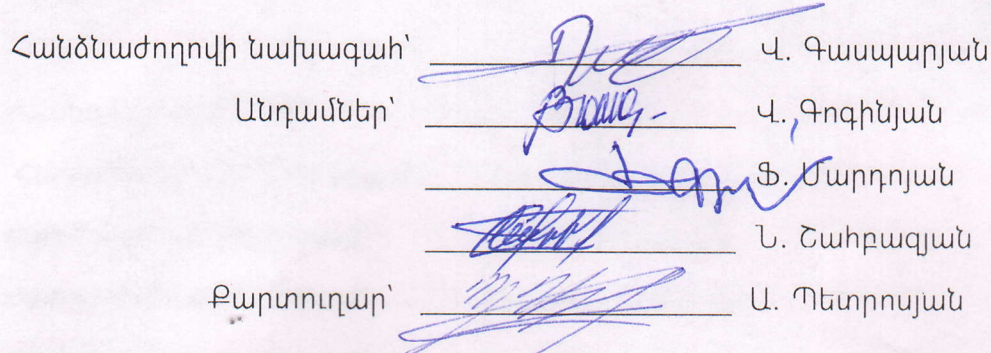 Հանձնաժողովի նախագահ՝ Վ. Գասպարյան
Անդամներ՝ Վ. Գոգինյան
Ֆ. Մարդոյան
Ն. Շահբազյան
Քարտուղար՝ Ա. Պետրոսյան